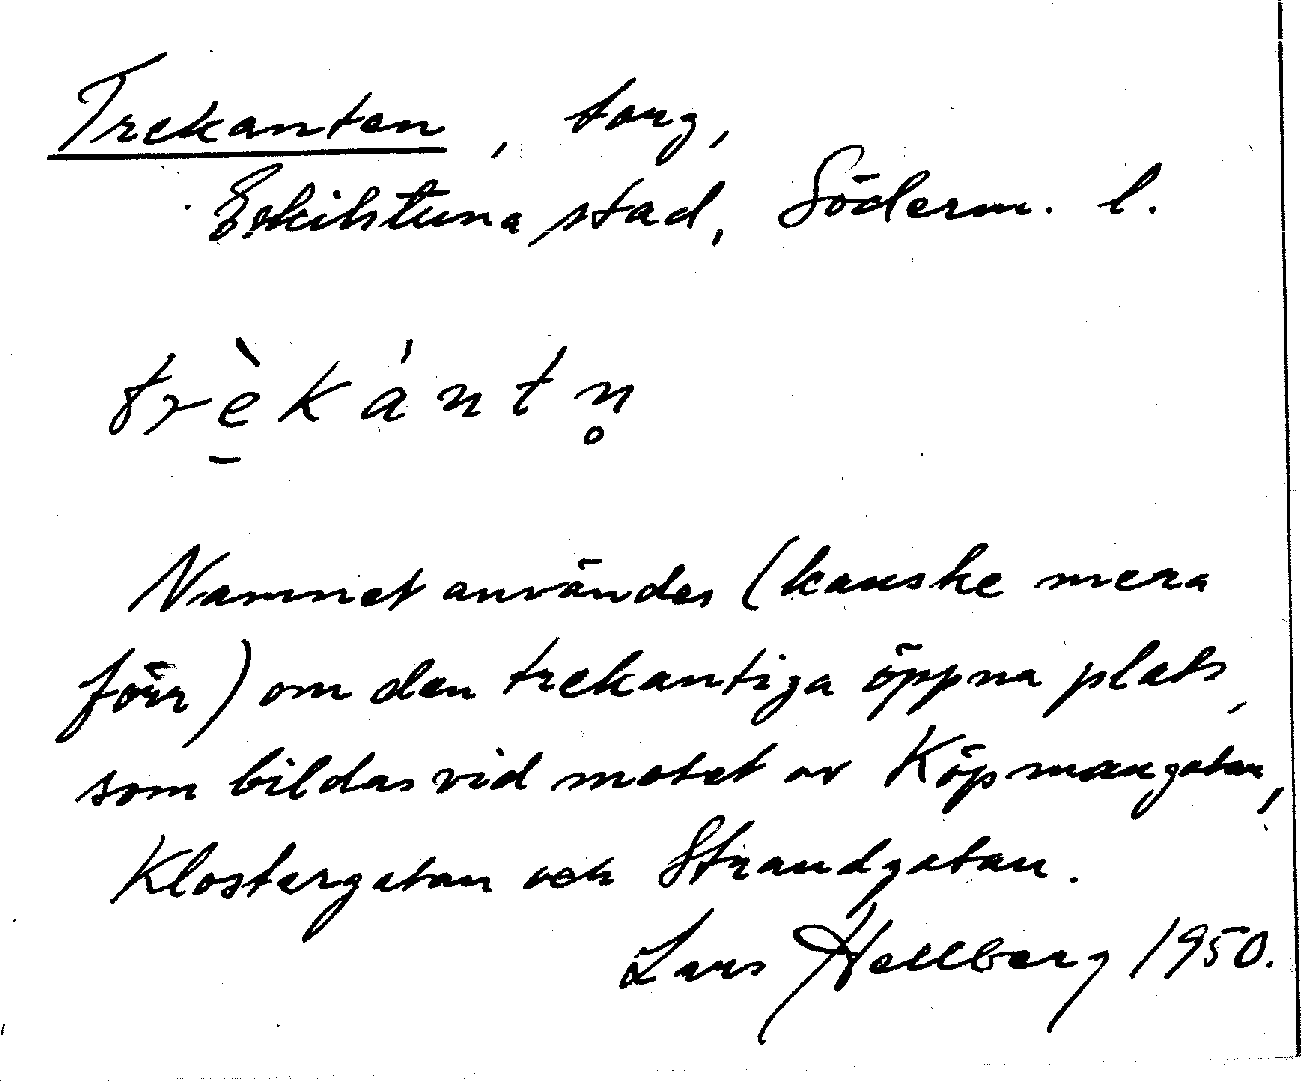 Trekanten, torg,
Eskilstuna stad, Söderm. l.
trè̱kántn̥
Namnet användes (kanske mera
förr) om den trekantiga öppna plats,
som bildas vid motet av Köpmangatan,
Klostergatan och Strandgatan.
Lars Hellberg 1950.